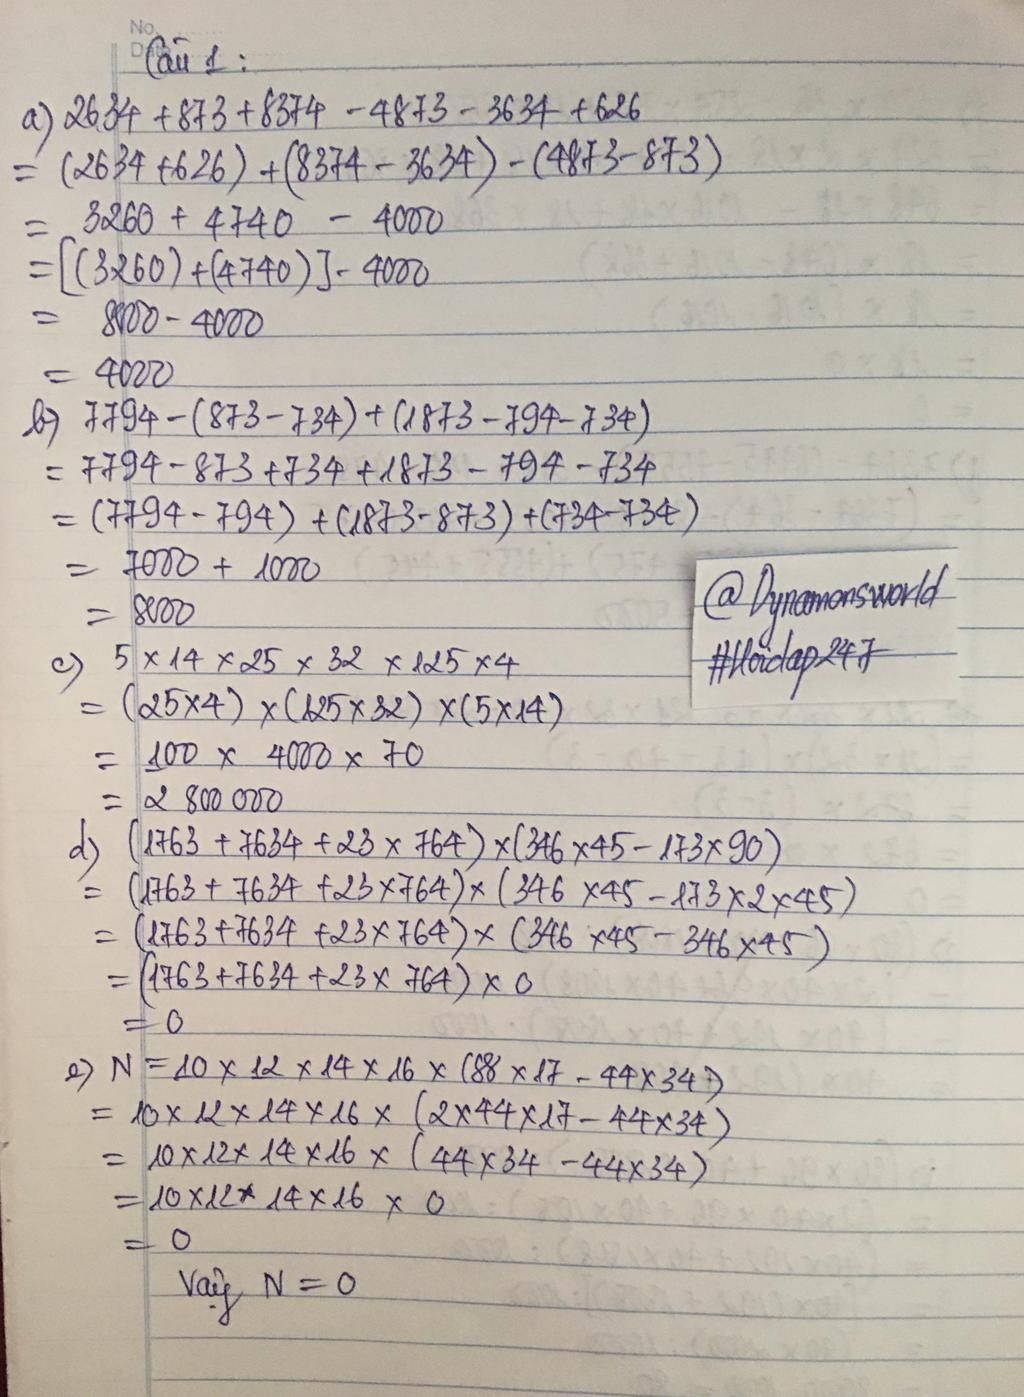 No
Câu 1 :
a) 2634 + 873 + 8374 - 4873 - 3634 + 626
= (2634 + 626) + (8374 - 3634) - (4873 - 873)
= 3260 + 4740 - 4000
= [(3260) + (4740)] - 4000
= 8000 - 4000
= 4000
b) 7794 - (873 - 734) + (1873 - 794 - 734)
= 7794 - 873 + 734 + 1873 - 794 - 734
= (7794 - 794) + (1873 - 873) + (734 - 734)
= 7000 + 1000
= 8000
@Dynamonsworld
#Hoidap247
c) 5 × 14 × 25 × 32 × 125 × 4
= (25×4) × (125×32) × (5×14)
= 100 × 4000 × 70
= 2 800 000
d) (1763 + 7634 + 23 × 764) × (346 × 45 - 173 × 90)
= (1763 + 7634 + 23×764) × (346 × 45 - 173 × 2 × 45)
= (1763 + 7634 + 23 × 764) × (346 × 45 - 346 × 45)
= (1763 + 7634 + 23 × 764) × 0
= 0
e) N = 10 × 12 × 14 × 16 × (88 × 17 - 44 × 34)
= 10 × 12 × 14 × 16 × (2×44×17 - 44×34)
= 10×12× 14×16 × (44×34 - 44×34)
= 10×12× 14×16 × 0
= 0
Vậy N = 0